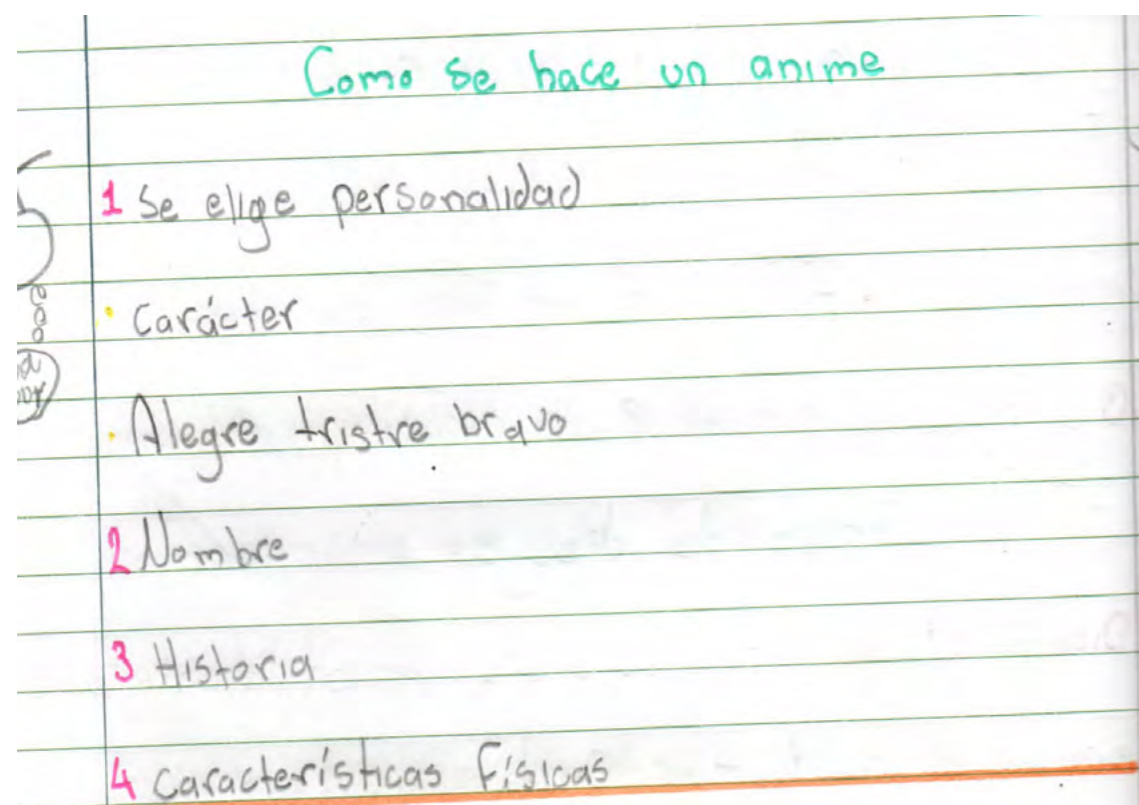 Como se hace un anime
1 Se elige personalidad
· Carácter
· Alegre tristre bravo
2 Nombre
3 Historia
4 Características Físicas